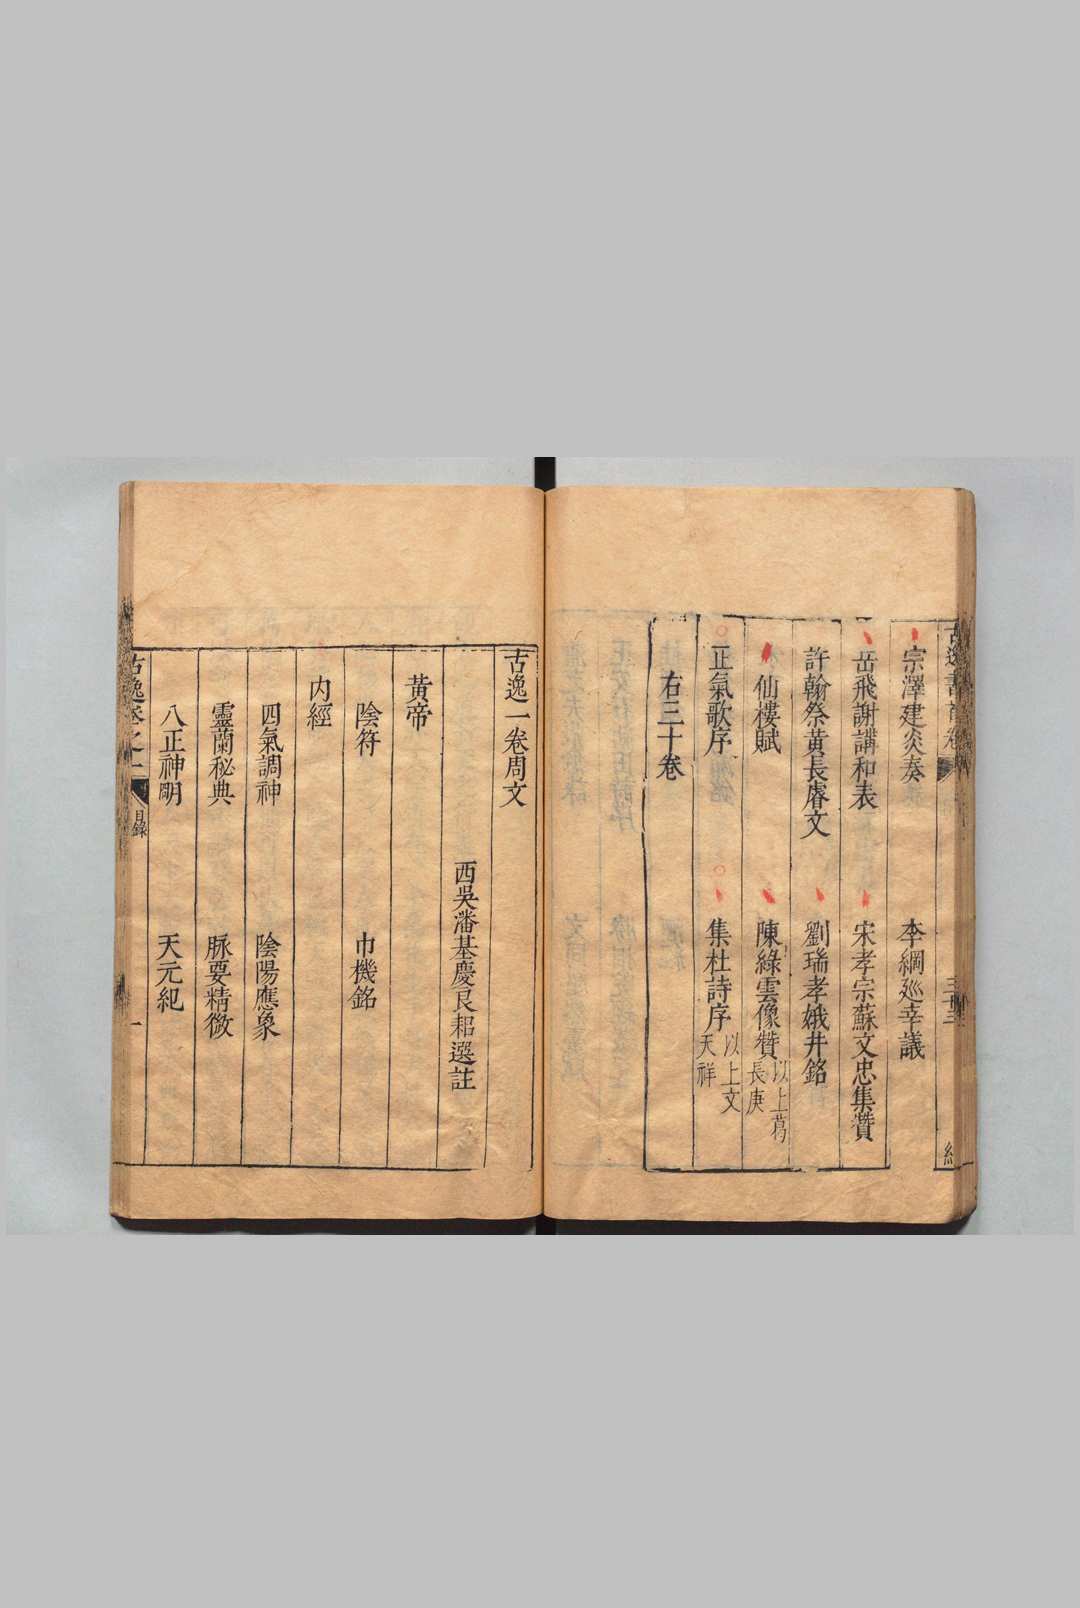 古逸書首卷
三十三
宗澤建炎奏 李綱廵幸議
岳飛謝講和表 宋孝宗蘇文忠集贊
許翰祭黃長睿文 劉瑞孝娥井銘
仙樓賦 陳綠雲像贊 以上葛長庚
正氣歌序 集杜詩序 以上文天祥
右三十卷
古逸一卷周文
西吳潘基慶良耜選註
黃帝
陰符 巾機銘
内經
四氣調神 陰陽應象
靈蘭秘典 脉要精微
八正神明 天元紀
古逸卷之一 目錄 一